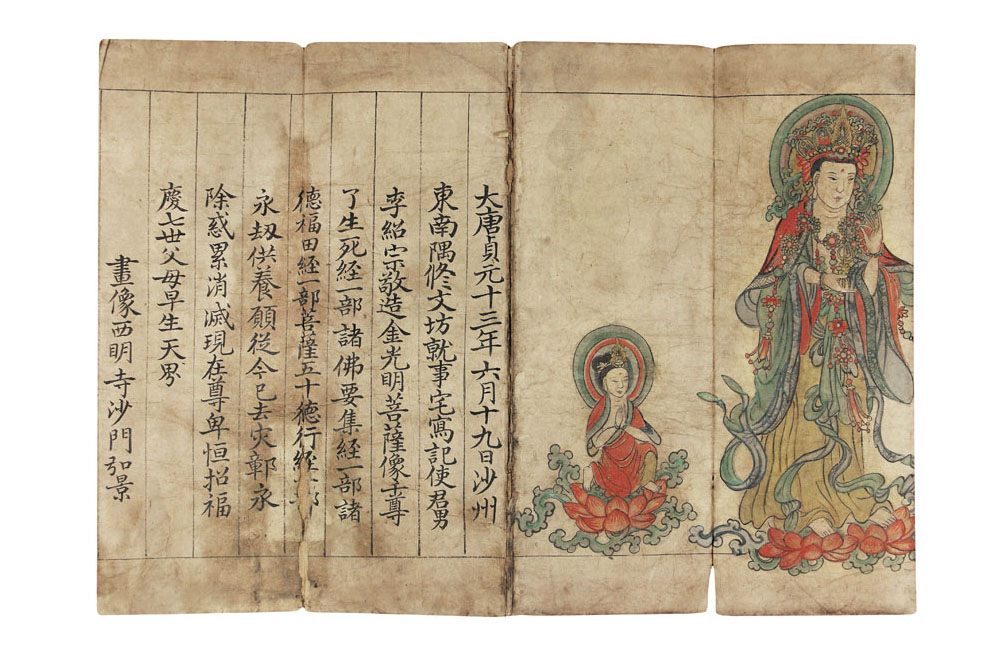 大唐貞元十三年六月十九日沙州
東南隅修文坊就事宅寫記使君男
李紹宗敬造金光明菩薩像壹尊
了生死経一部諸佛要集経一部諸
德福田経一部菩薩五十德行経一部
永劫供養願從今已去灾鄣永
除惑累消滅現在尊卑恒招福
慶七世父母早生天界
畫像西明寺沙門弘景